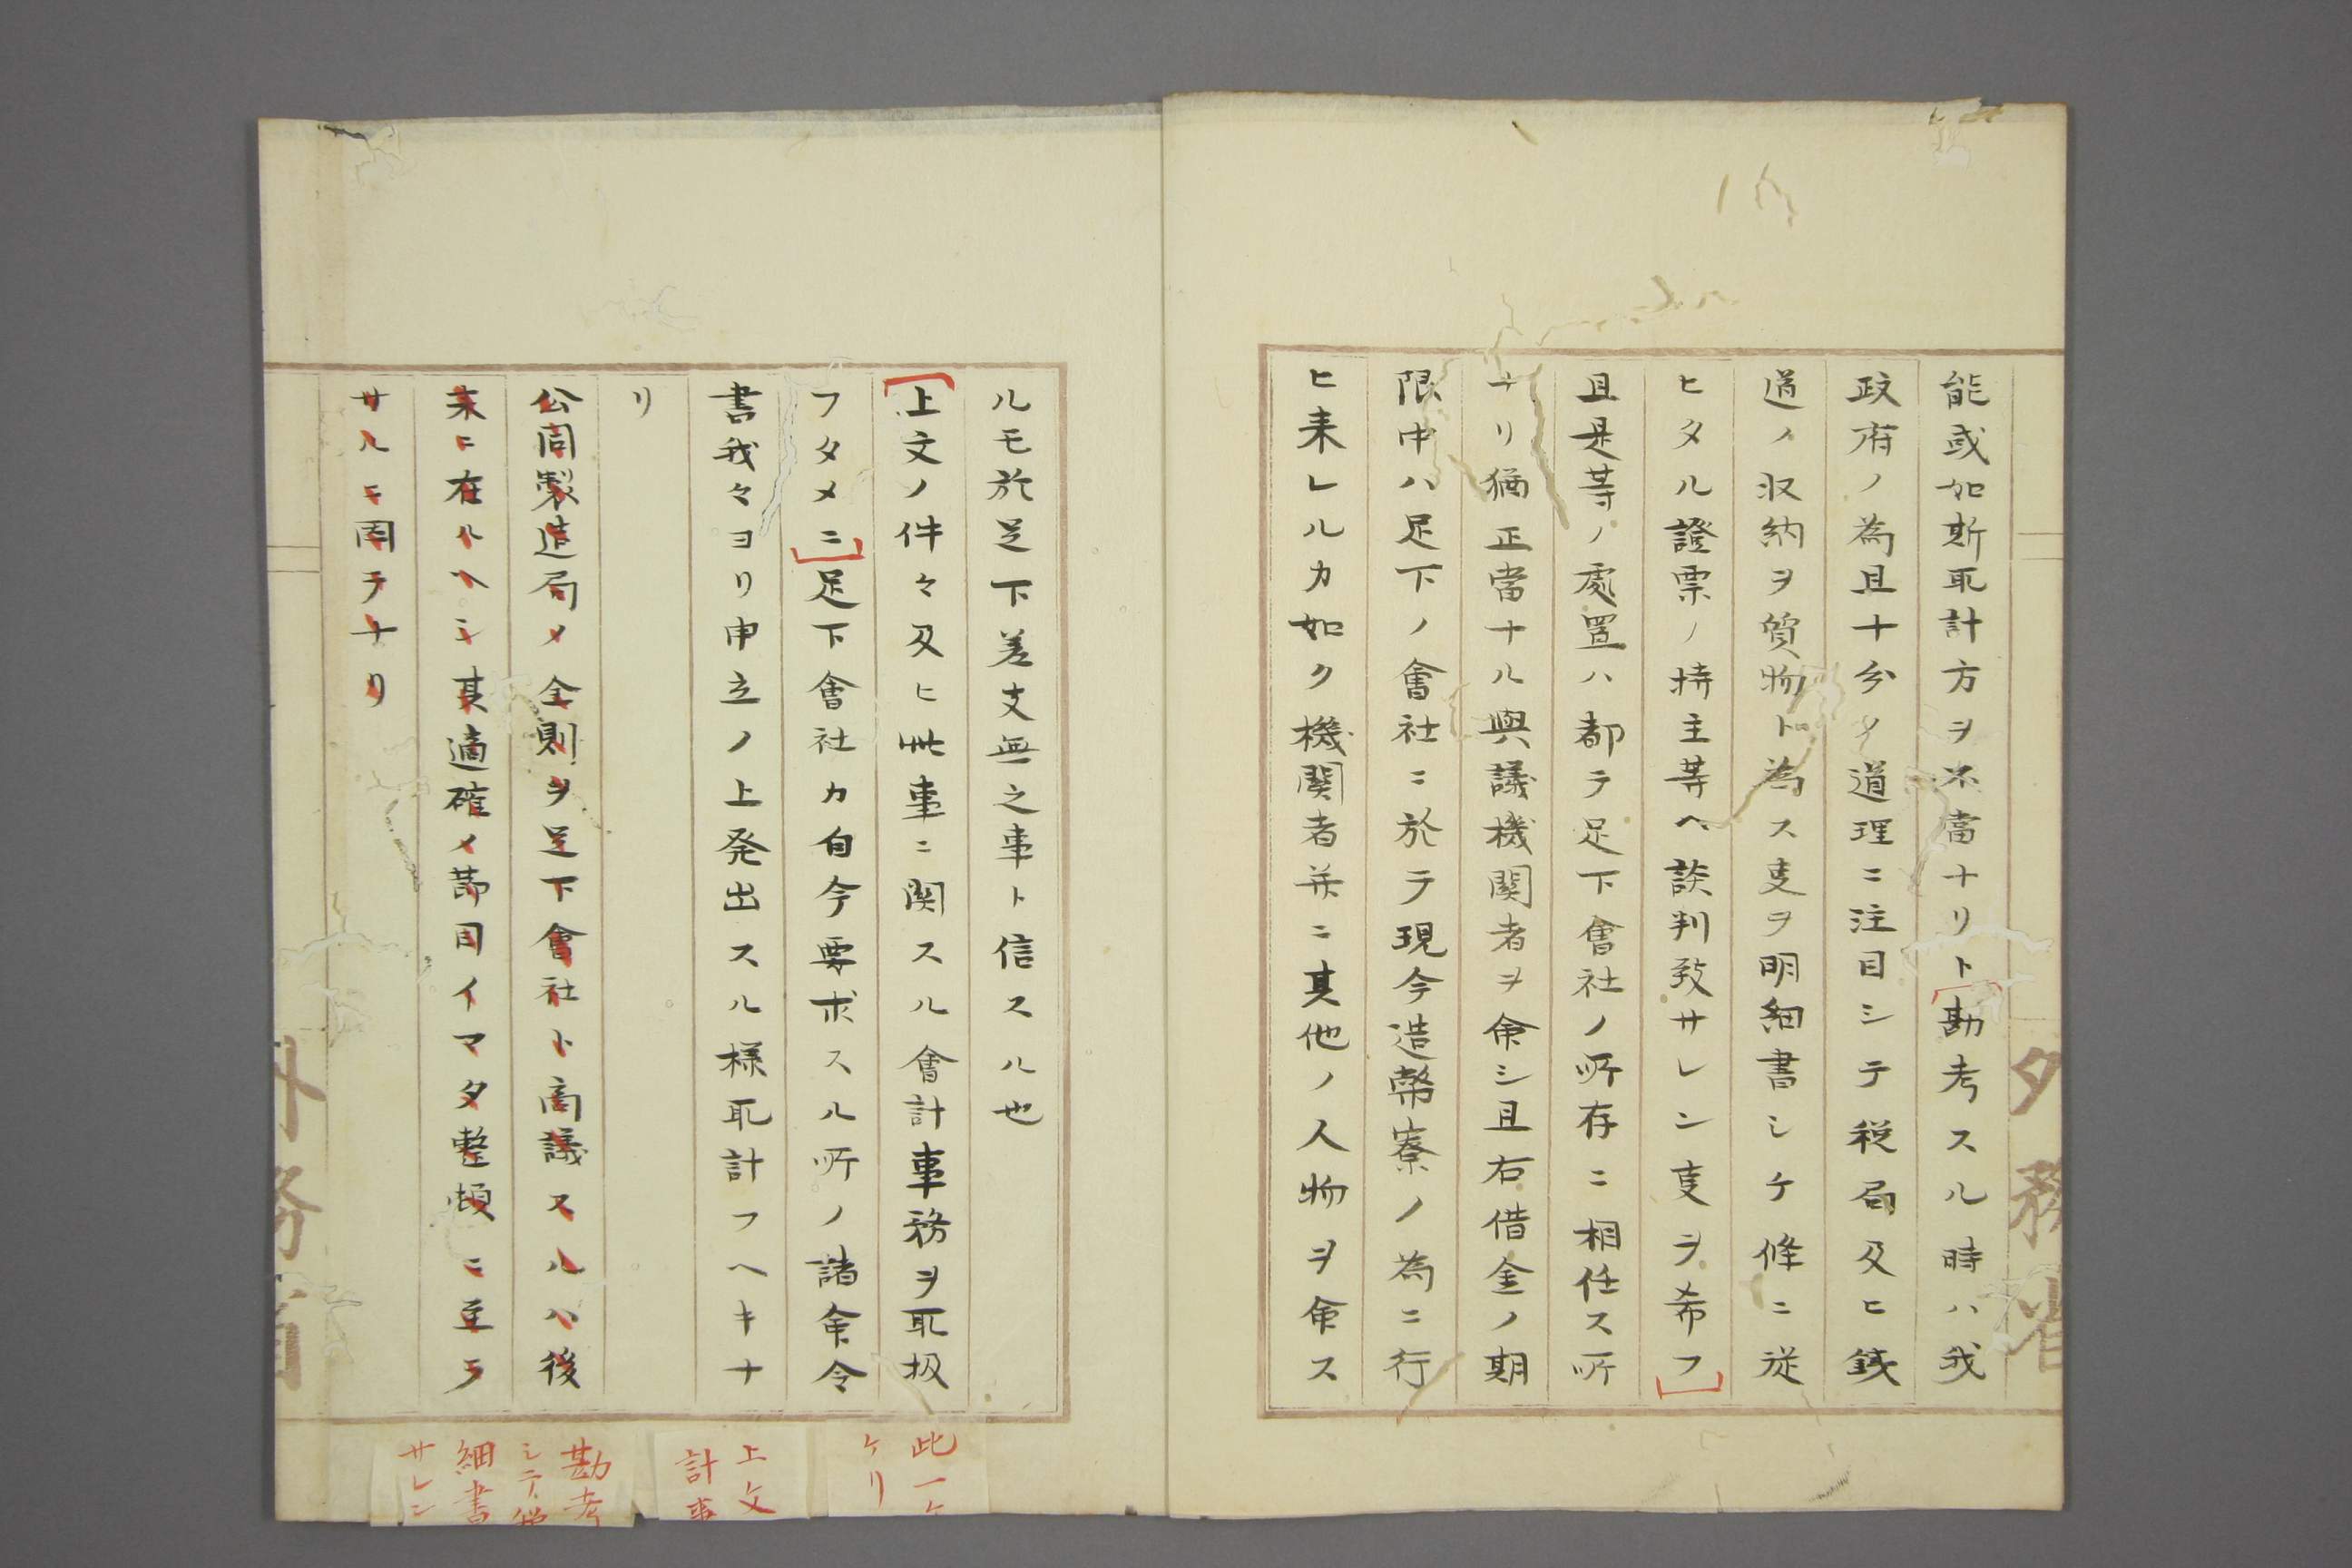 能或如斯取計方ヲ不當ナリト勘考スル時ハ我
政府ノ為且十分ノ道理ニ注目シテ税局及ヒ鉄
道ノ収納ヲ質物ト為ス叓ヲ明細書シケ條ニ従
ヒタル證票ノ持主等ヘ談判致サレン叓ヲ希フ
且是等ノ處置ハ都テ足下會社ノ所存ニ相任ス所
ナリ猶正當ナル與議機関者ヲ命シ且右借金ノ期
限中ハ足下ノ會社ニ於テ現今造幣寮ノ為ニ行
ヒ来レルカ如ク機関者并ニ其他ノ人物ヲ命ス
ルモ於足下差支無之事ト信スル也
上文ノ件々及ヒ此事ニ関スル會計事務ヲ取扱
フタメニ足下會社カ自今要求スル所ノ諸命令
書我々ヨリ申立ノ上発出スル様取計フヘキナ
リ
公同製造局ノ全則ヲ足下會社ト商議スルハ後
来ニ在ルヘシ其適確ノ節目イマタ整頓ニ至ラ
サルニ因テナリ
外務省
此一ケ
ケリ
上文
計事
勘考
シテ
細書
サレン